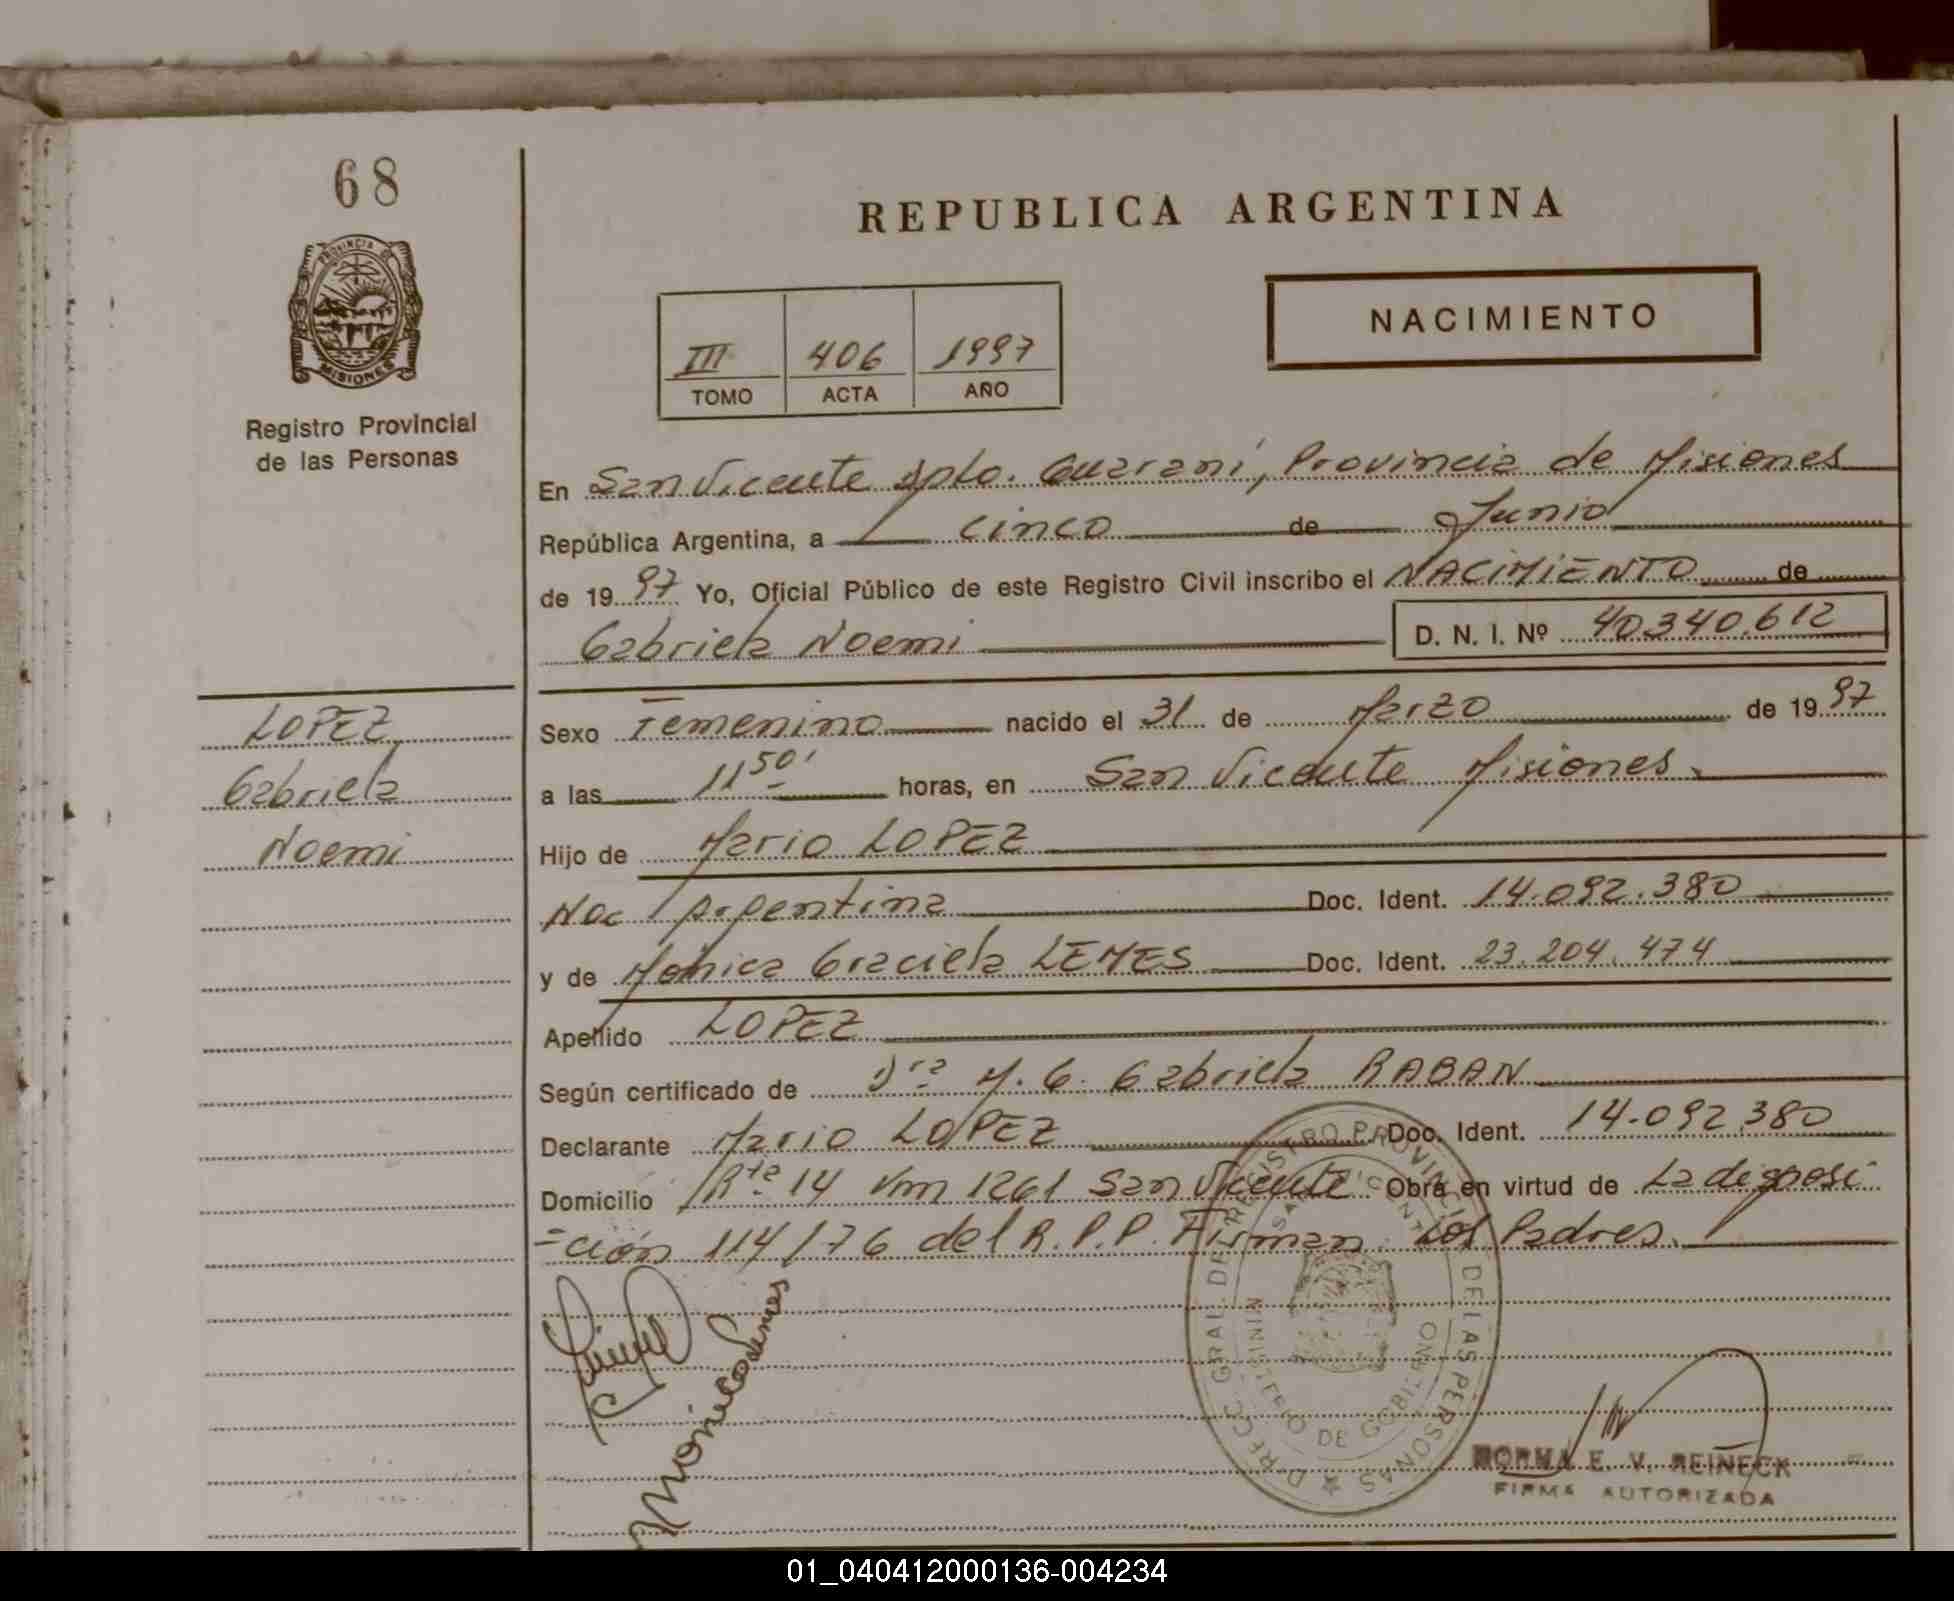 68
PROVINCIA DE
MISIONES
Registro Provincial
de las Personas
REPUBLICA ARGENTINA
NACIMIENTO
III 406 1997
TOMO ACTA AÑO
En San Vicente Dpto. Guaraní, Provincia de Misiones
República Argentina, a cinco de Junio
de 1997 Yo, Oficial Público de este Registro Civil inscribo el NACIMIENTO de
Gabriela Noemi D. N. I. Nº 40.340.612
LOPEZ
Gabriela
Noemi
Sexo Femenino nacido el 31 de Marzo de 1997
a las 11 50' horas, en San Vicente Misiones.
Hijo de Mario LOPEZ
Nac Argentina Doc. Ident. 14.092.380
y de Mónica Graciela LEMES Doc. Ident. 23.204.474
Apellido LOPEZ
Según certificado de Dra M. G. Gabriela RABAN
Declarante Mario LOPEZ Doc. Ident. 14.092.380
Domicilio Rta 14 Km 1261 San Vicente Obra en virtud de La disposi
=ción 114/76 del R.P.P. Firman. Los Padres.
Monica Lemes
DIRECC. GRAL. DE REGISTRO PROVINCIAL DE LAS PERSONAS
MINISTERIO DE GOBIERNO
SAN VICENTE
NORMA E. V. REINECK
FIRMA AUTORIZADA
01_040412000136-004234